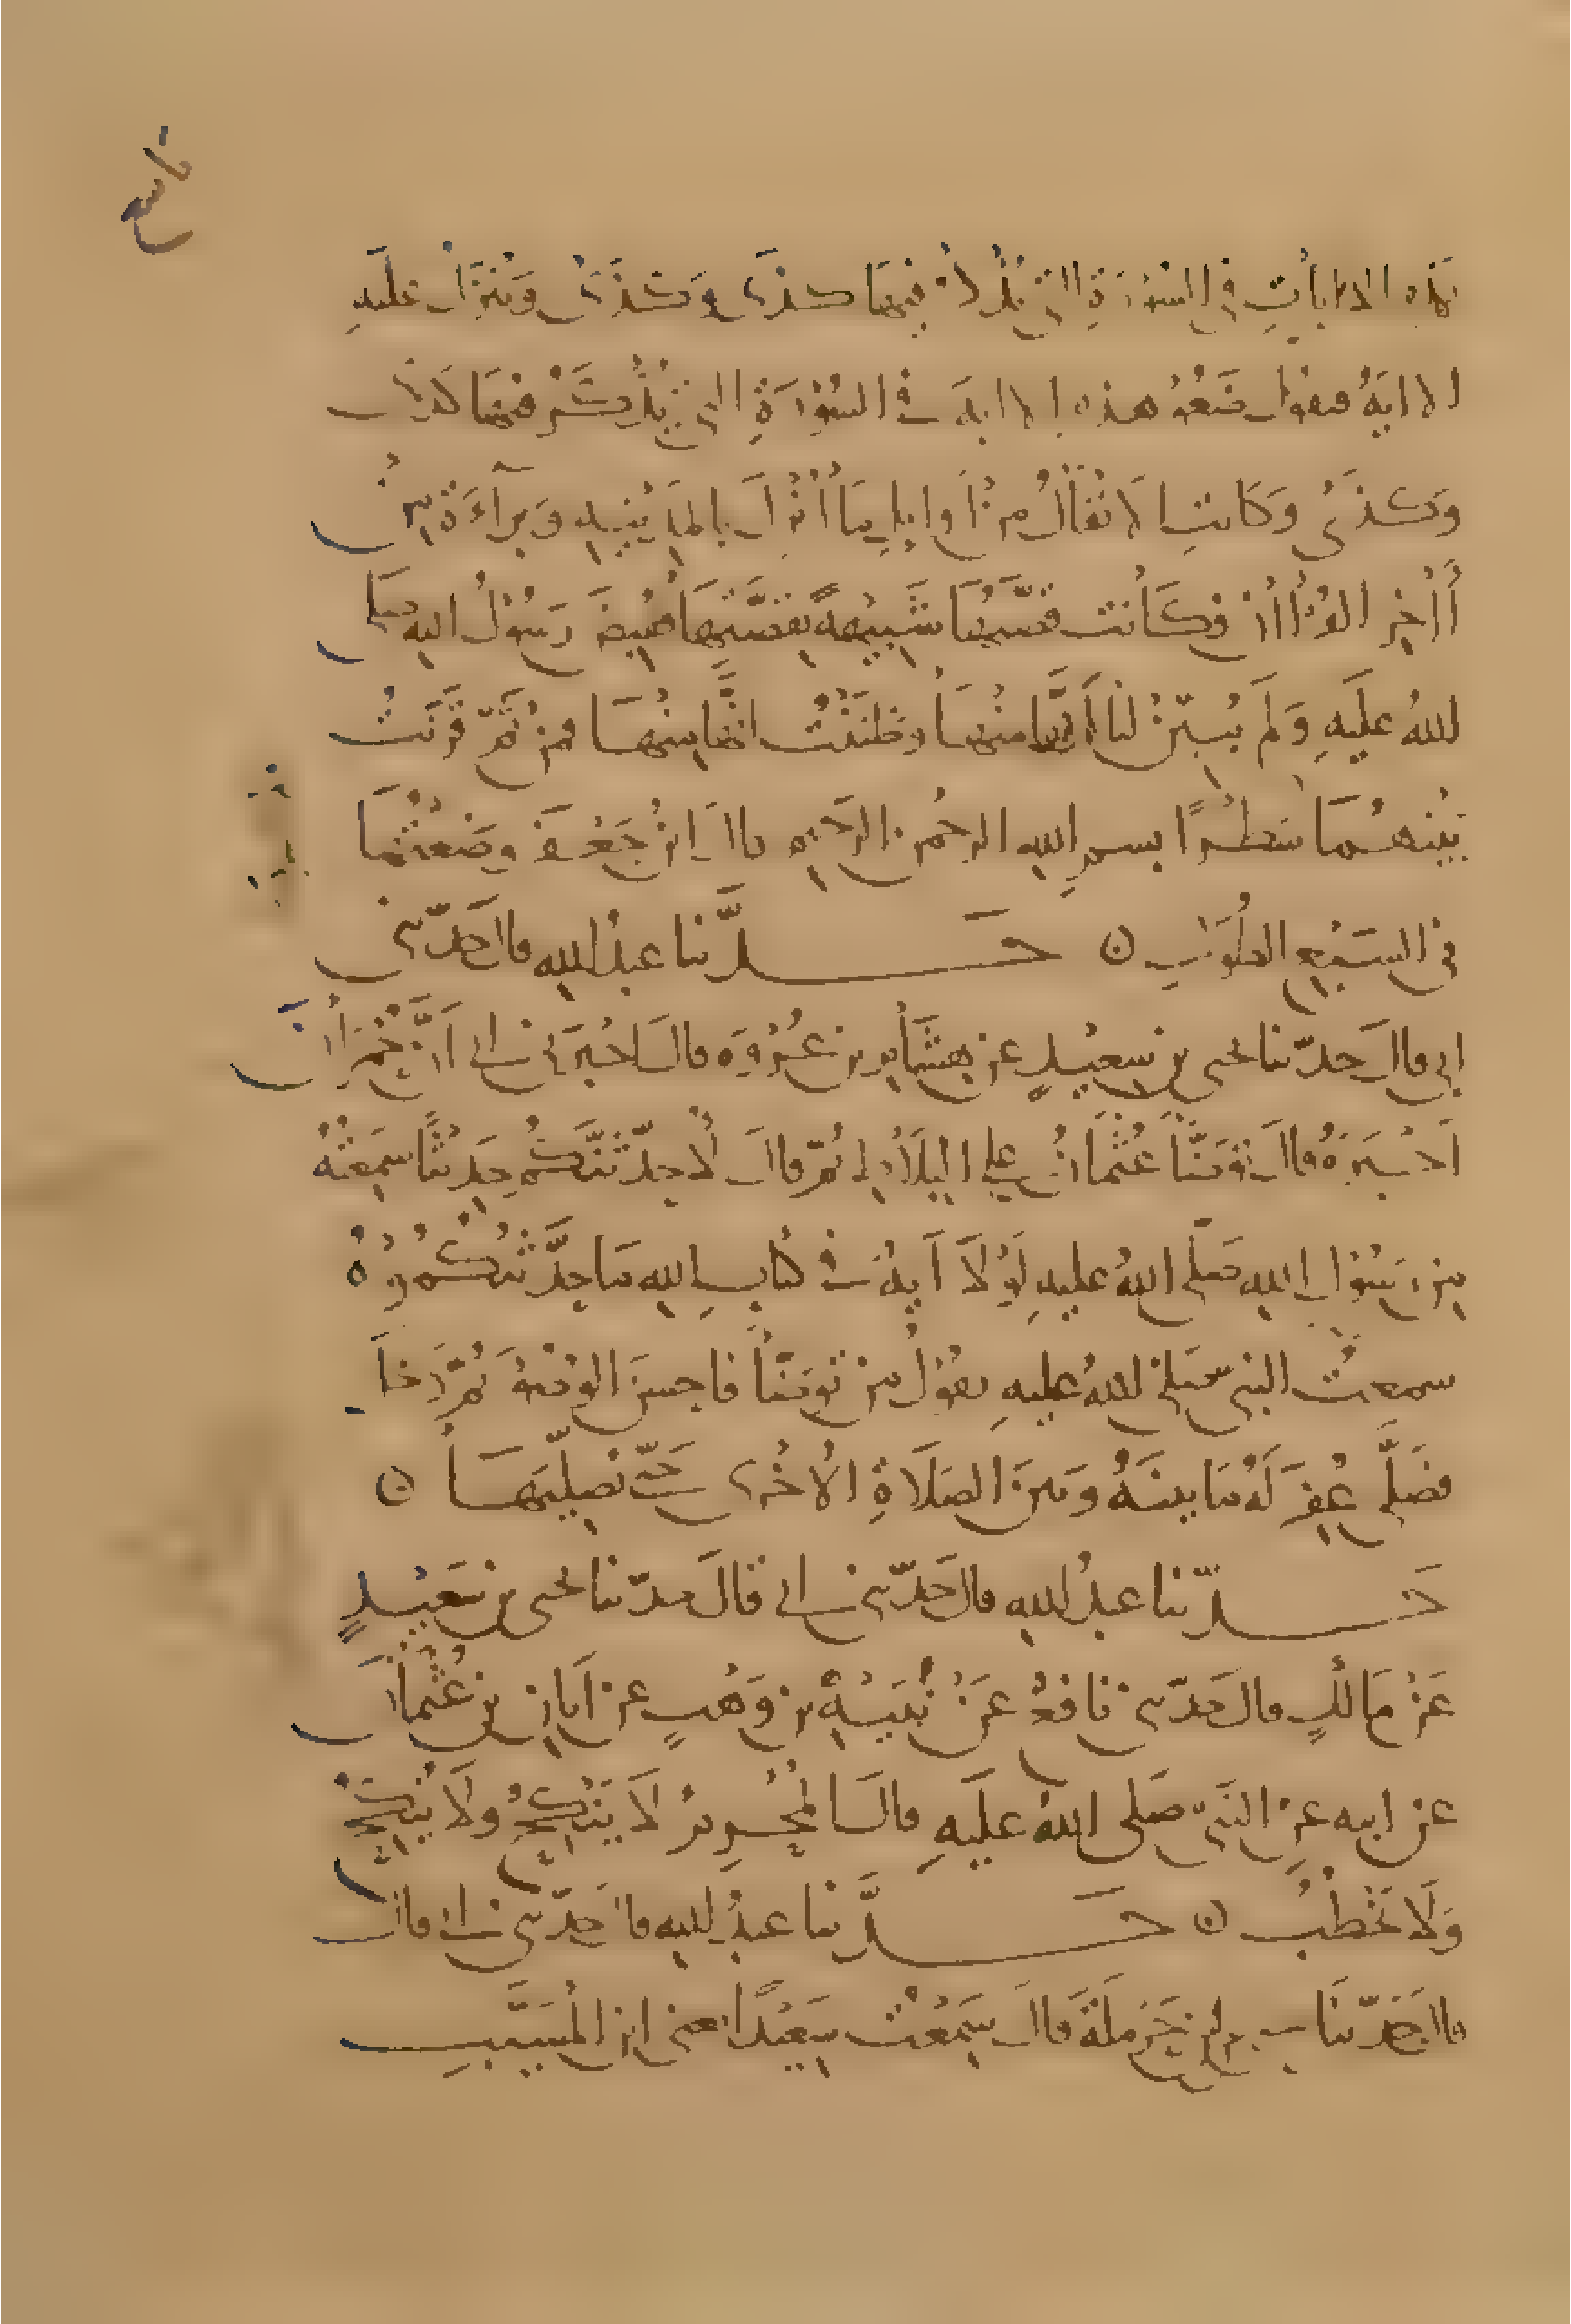 تاسع
هذه الايات في السورة التي يذكر فيها كذى وكذى وتنزل عليه
الاية فيقول ضعوا هذه الاية في السورة التي يذكر فيها كذى
وكذى وكانت الانفال من اوايل ما انزل بالمدينه وبرآءة من
اخر القرآن فكانت قصتها شبيهة بقصتها فقبض رسول الله صلى
الله عليه ولم يبين لنا انها منها وظننت انها منها فمن ثم قرنت
بينهما سطرًا بسم الله الرحمن الرحيم قال ابن جعفر ووضعتها
في السبع الطول ه حدثنا عبد الله قال حدثني
ابي قال حدثنا يحيى بن سعيد عن هشام بن عروه قال اخبرني ابي ان حمران
اخبره قال توضأ عثمان على البلاط ثم قال لاحدثنكم حديثا سمعته
من رسول الله صلى الله عليه لولا آية في كتاب الله ما حدثتكموه
سمعت النبي صلى الله عليه يقول من توضأ فاحسن الوضوء ثم دخل
فصلى غفر له ما بينه وبين الصلاة الاخرى حتى يصليها ه
حدثنا عبد الله قال حدثني ابي قال حدثنا يحيى بن سعيد
عن مالك قال حدثني نافع عن نبيه بن وهب عن ابان بن عثمان
عن ابيه عن النبي صلى الله عليه قال المحرم لا ينكح ولا ينكح
ولا يخطب ه حدثنا عبد الله قال حدثني ابي قال
قال حدثنا بن حرملة قال سمعت سعيدا يعني ابن المسيب